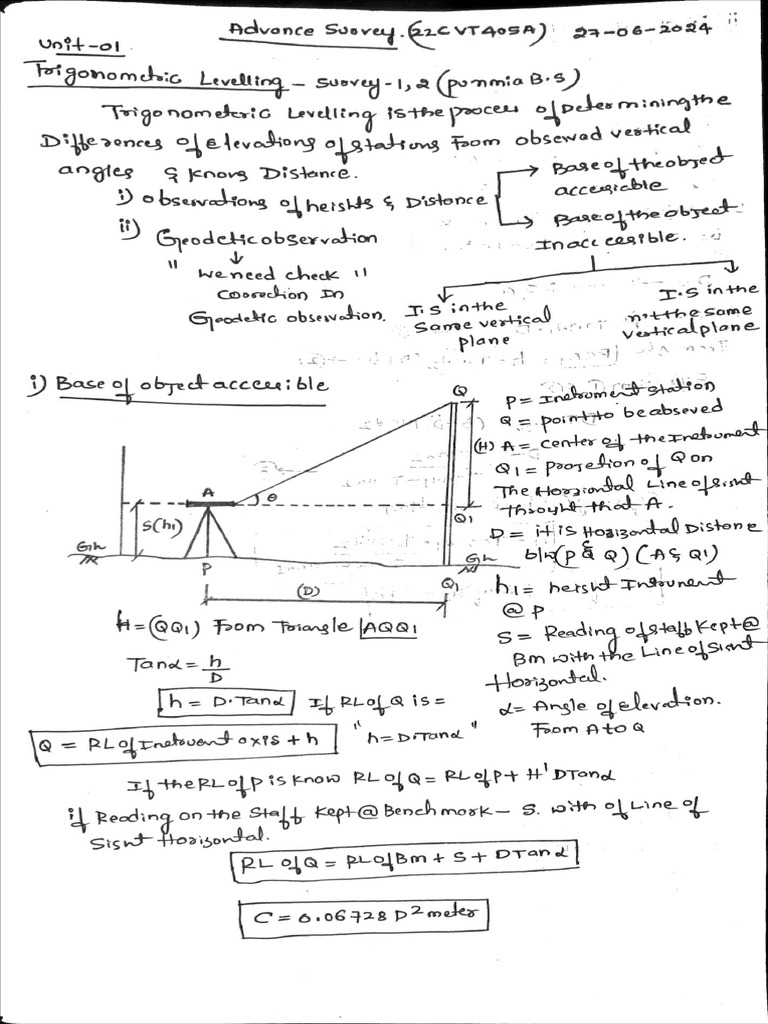 Advance Suovey. (22CVT405A) 27-06-2024
Unit-01
Trigonometric Levelling - Suovey-1, 2 (punmia B.S)
Trigonometric Levelling is the proces of Determining the
Differences of elevations of stations From obsewad vertical
angles & Knows Distance.
i) observations of heishts & Distance
Base of the object
accesicable
Base of the object
Inaccesible.
ii) Geodetic observation
" we need check 11
Coorection In
Geodetic observation.
I.S in the
Same vertical
plane
I.S in the
n't the same
vertical plane
i) Base of object accesible
Q
A
θ
S(h1)
Q1
G.h
G.h
P
(D)
Q1
P = Instroment station
Q = point to be abseved
(H) A = center of the Instoument
Q1 = projetion of Q on
The Horsiontal Line of sisnt
throught thiod A.
D = it is Hosizontal Distone
b/w (p & Q) (A & Q1)
h1 = heisht Instrunent
@ p
S = Reading of staff Kept @
Bm with the Line of Sisnt
Horizontal.
α = Angle of elevation.
From A to Q
H = (QQ1) From Triangle AQQ1
Tanα = h/D
h = D.Tanα If RL of Q is =
Q = RL of Instouent axis + h "h = D.Tanα"
If the RL of p is know RL of Q = RL of P + H' DTanα
if Reading on the Staff Kept @ Benchmork - S. with of Line of
Sisnt Horizontal.
RL of Q = RL of Bm + S + DTanα
C = 0.06728 D2 meter